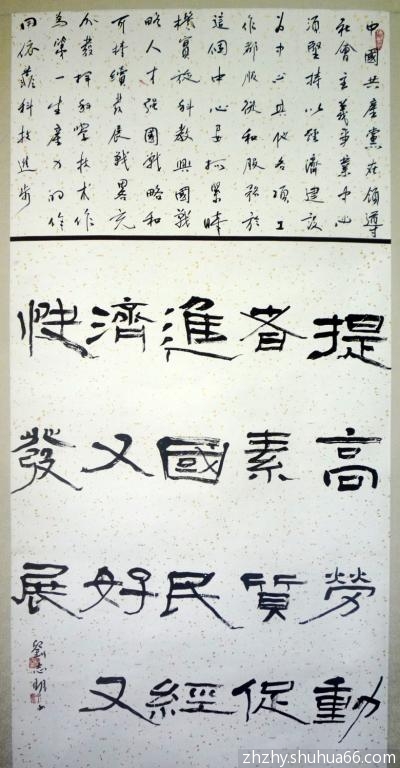 中國共產黨在領導
社會主義事業中必
須堅持以經濟建設
為中心其他各項工
作都服從和服務於
這個中心要抓緊時
機實施科教興國戰
略人才強國戰略和
可持續發展戰畧充
分發揮科學技术作
為第一生產力的作
用依靠科技進步
提高勞動
者素質促
進國民經
濟又好又
快發展
劉志明
zhzhy.shuhua66.com